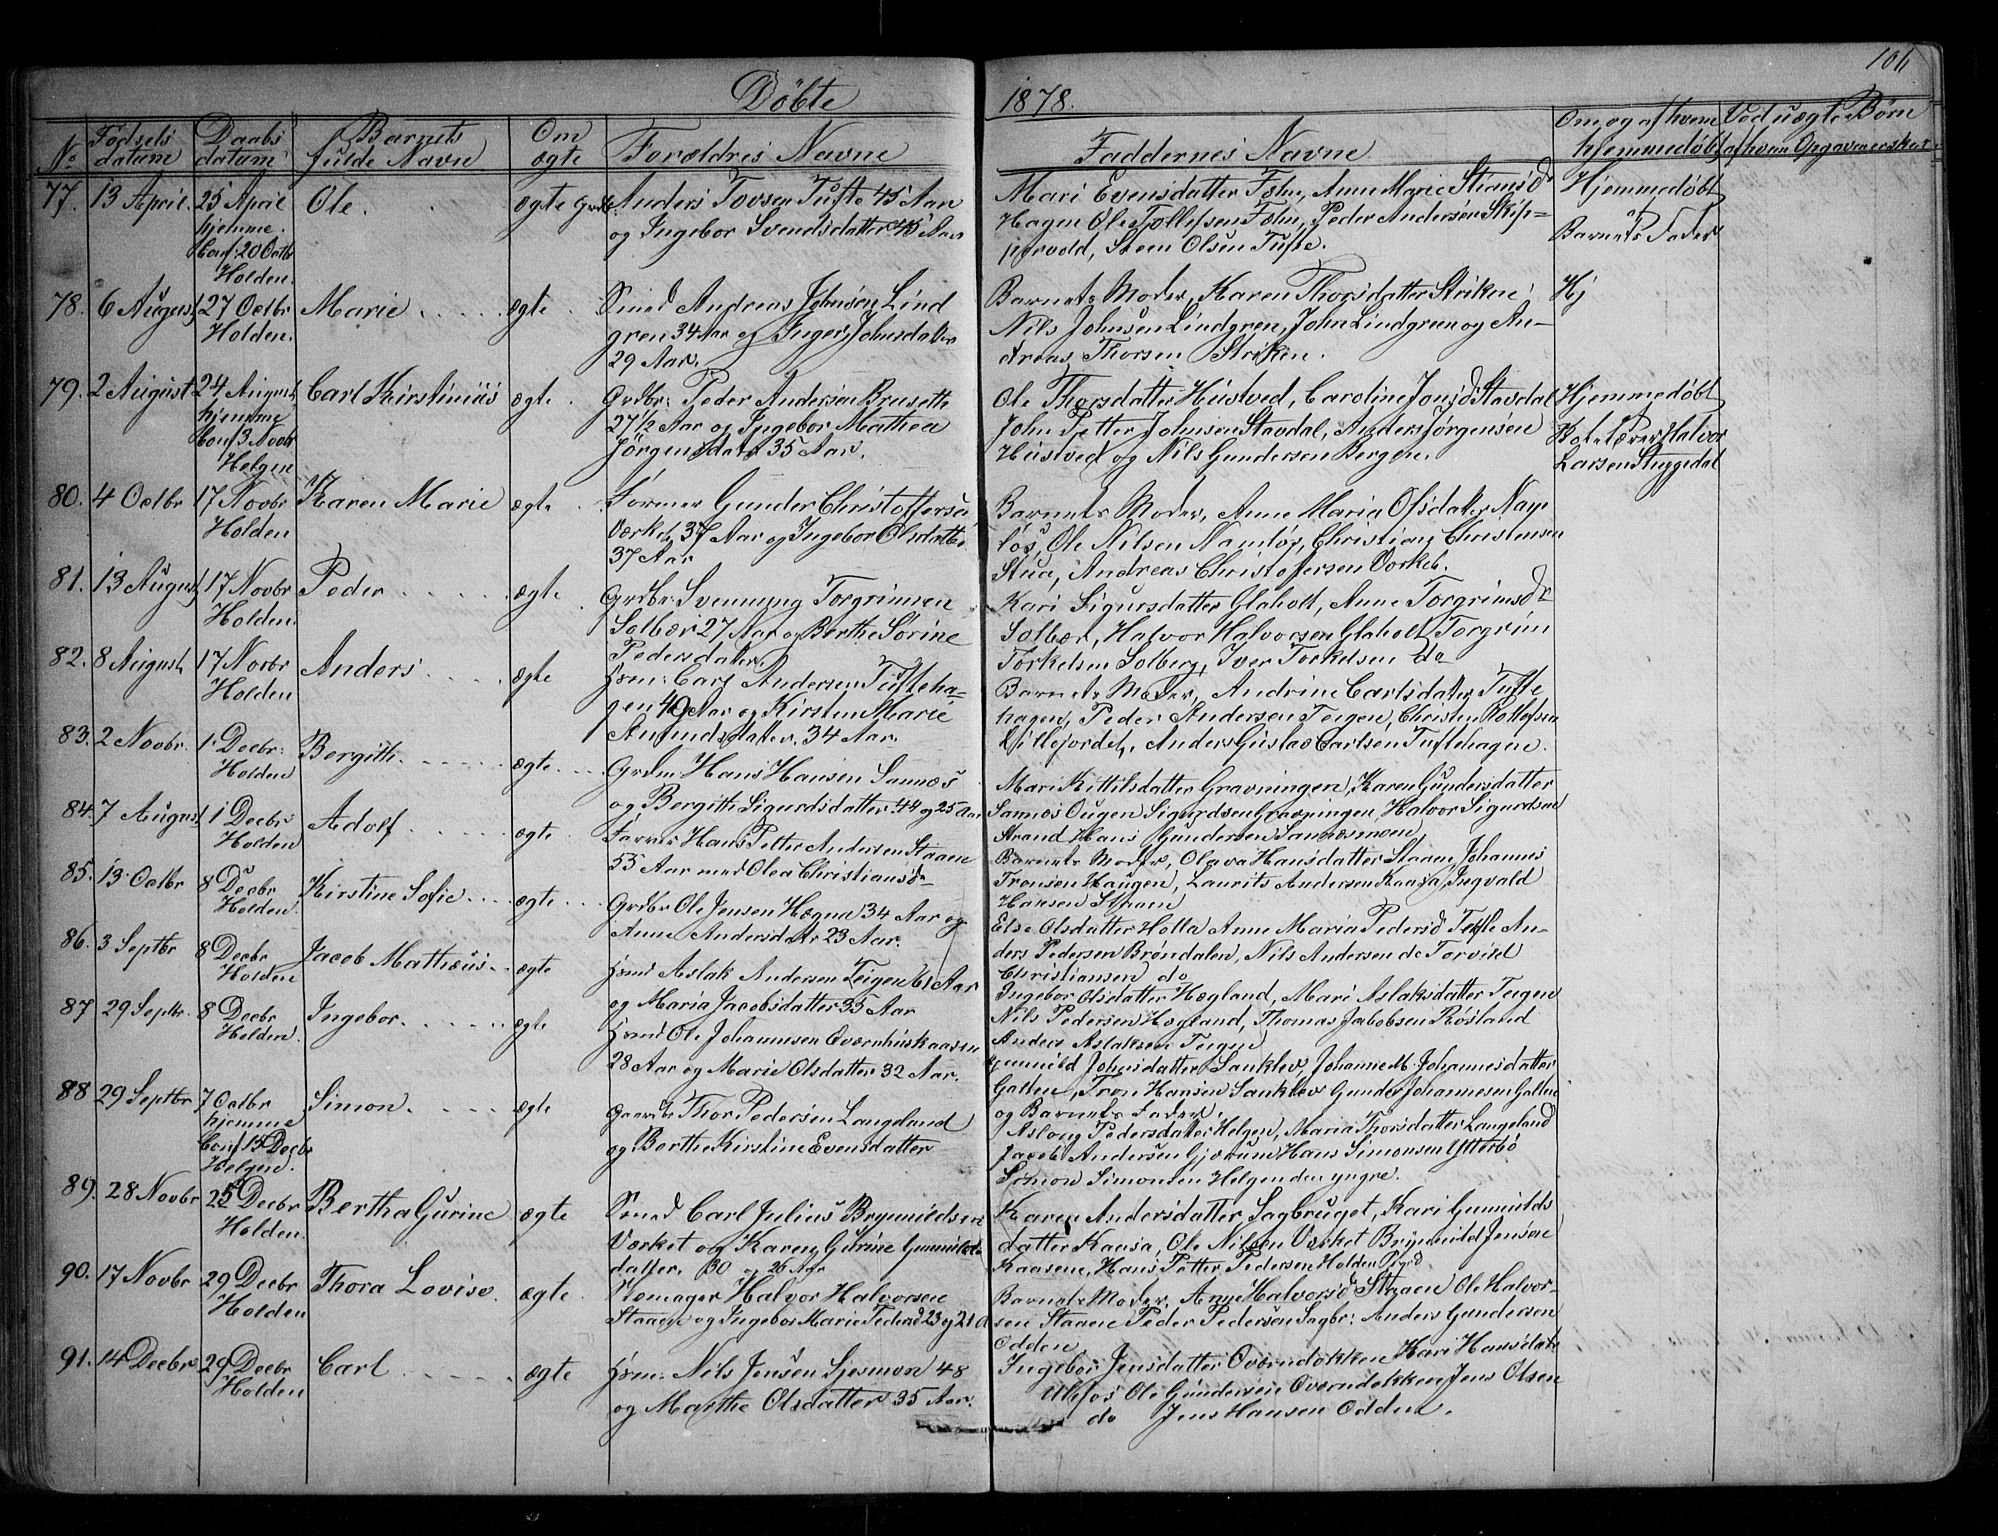 106
Døbte 1878.
No Fødsels datum Daabs datum Barnets fulde Navn Om ægte Forældres Navne Faddernes Navne Om og af hvem hjemmedøbt Ved uægte Børn af hvem Opgaven er sket
77. 13 April. 25 April hjemme. Conf: 20 Octbr Holden. Ole. ægte
Grdbr: Anders Tovsen Tufte 45 Aar
og Ingebor Svendsdatter 45 Aar
Mari Evensdatter Fæhn, Anne Marie Stiansd.
Hagen Ole Tollefsen Fæhn, Peder Andersen Skip-
pervold, Steen Olsen Tufte.
Hjemmedøbt
af
Barnets Fader
78. 6 August 27 Octbr Holden. Marie ægte
Smed Andreas Johnsen Lind
gren 34 Aar og Inger Johnsdatter
29 Aar.
Barnets Moder, Karen Thorsdatter Striken
Nils Johnsen Lindgren, John Lindgren og An-
dreas Thorsen Striken.
Hj
79. 2 August 24 August, hjemme Conf 3 Novbr Helgen Carl Kirstinius ægte
Grdbr: Peder Andersen Brusette
27 1/2 Aar og Ingebor Mathea
Jörgensdatr 35 Aar.
Ole Thorsdatter Hustved, Caroline Jonsd Stavdal
John Petter Johnsen Stavdal, Anders Jörgensen
Hustved og Nils Gundersen Bergen.
Hjemmedøbt
af
Halvor
Larsen Styggedal
80. 4 Octbr 17 Novbr Holden Karen Marie ægte
Former Gunder Christoffersen
Værket, 37 Aar og Ingebor Olsdatter
37 Aar
Barnets Moder, Anne Maria Olsdatter Navn
løs, Ole Nilsen Namløs, Christian Christensen
Stua, Andreas Christofersen Værket.
81. 13 August 17 Novbr Holden. Peder ægte
Grdbr: Svennung Torgrimsen
Solbær 27 Aar og Berthe Sørine
Pedersdatter.
Kari Sigursdatter Glaholt, Anne Torgrimsdr
Solbær, Halvor Halvorsen Glaholt Torgrim
Torkelsen Solberg, Iver Torkelsen do
82. 8 August 17 Novbr Holden Anders ægte
Carl Andersen Tufteha-
gen 40 Aar og Kirsten Marie
Amundsdatter. 34 Aar.
Barnets Moder, Andrine Carlsdatter Tufte
hagen, Peder Andersen Teigen, Christen Rollefsen
Lillejordet, Anders Gustav Carlsen Tuftehagen.
83. 2 Novbr. 1. Decbr: Holden Bergith. ægte
Grdm: Hans Hansen Sannæs
og Bergith Sigurdsdatter 44 og 25 Aar
Mari Kittilsdatter Gravningen, Karen Gundersdatter
Sannæs Ougen Sigurdsen Gravningen, Halvor Sigurdsen
Strand Hans Gundersen Sannæsmoen
84. 7 August 1 Decbr Holden Adolf ægte
Farver Hans Petter Andersen Staaen
55 Aar med Olea Christiansdr
Barnets Moder, Olava Hansdatter Staaen, Johannes
Tronsen Haugen, Laurits Andersen Kaasa, Ingvald
Hansen
85. 13 Octbr 8 Decbr Holden. Kirstine Sofie ægte
Grdbr Ole Jensen Hægna 34 Aar og
Anne Andersdatr 23 Aar.
Else Olsdatter Holla Anne Maria Pedersd Tufte An-
ders Pedersen Brøndalen, Nils Andersen do Torvild
Christiansen do
86. 3 Septbr 8 Decbr Holden Jacob Mathæus ægte
Aslak Andersen Teigen 61 Aar
og Maria Jacobsdatter 35 Aar
Ingebor Olsdatter Hægland, Mari Aslaksdatter Teigen
Nils Pedersen Hægland, Thomas Jakobsen Røsland
Anders Aslaksen Teigen
87 29 Septbr. 8 Decbr Holden. Ingebor ægte
Ole Johannesen Oværnhuskaasen
28 Aar og Marie Olsdatter 32 Aar.
Gunnild Johnsdatter Sanklev, Johanne M. Johannesdatter
Galten, Tron Hansen Sanklev Gunder Johannesen Galten
og Barnets Fader.
88 29 Septbr 7 Octbr hjemme Conf 15 Decbr Helgen. Simon ægte
Gaardbr Thor Pedersen Langeland
og Berthe Kirstine Evensdatter
Aslaug Pedersdatter Helgen, Maria Thorsdatter Langeland
Jacob Andersen Gjærum Hans Simonsen Ytterbø
Simon Simonsen Helgen den yngre.
89. 28 Novbr 25 Decbr Holden. Bertha Gurine ægte
Smed Carl Julius Brynnildsen
Værket og Karen Gurine Gunnilds
datter. 30 og 26 Aar
Karen Andersdatter Sagbruget, Kari Gunnilds
datter Kaasa, Ole Nilsen Værket Brynnild Jensen
Kaasene, Hans Petter Pedersen Holden Pgrd
90. 17 Novbr 29 Decbr Holden Thora Lovise ægte
Skomager Halvor Halvorsen
Staaen og Ingebor Marie Pedersd 23 og 21 A
Barnets Moder, Anne Halvorsd Staaen Ole Halvor-
sen Staaen Peder Pedersen Sagbr: Anders Gundersen
Odden
91. 14 Decbr. 29 Decbr Holden Carl ægte
Nils Jensen Sjesmon 48
og Marthe Olsdatter 35 Aar.
Ingebor Jensdatter Oværndokken Kari Hansdatr
Ulefos Ole Gundersen Oværndokken Jens Olsen
do Jens Hansen Odden.